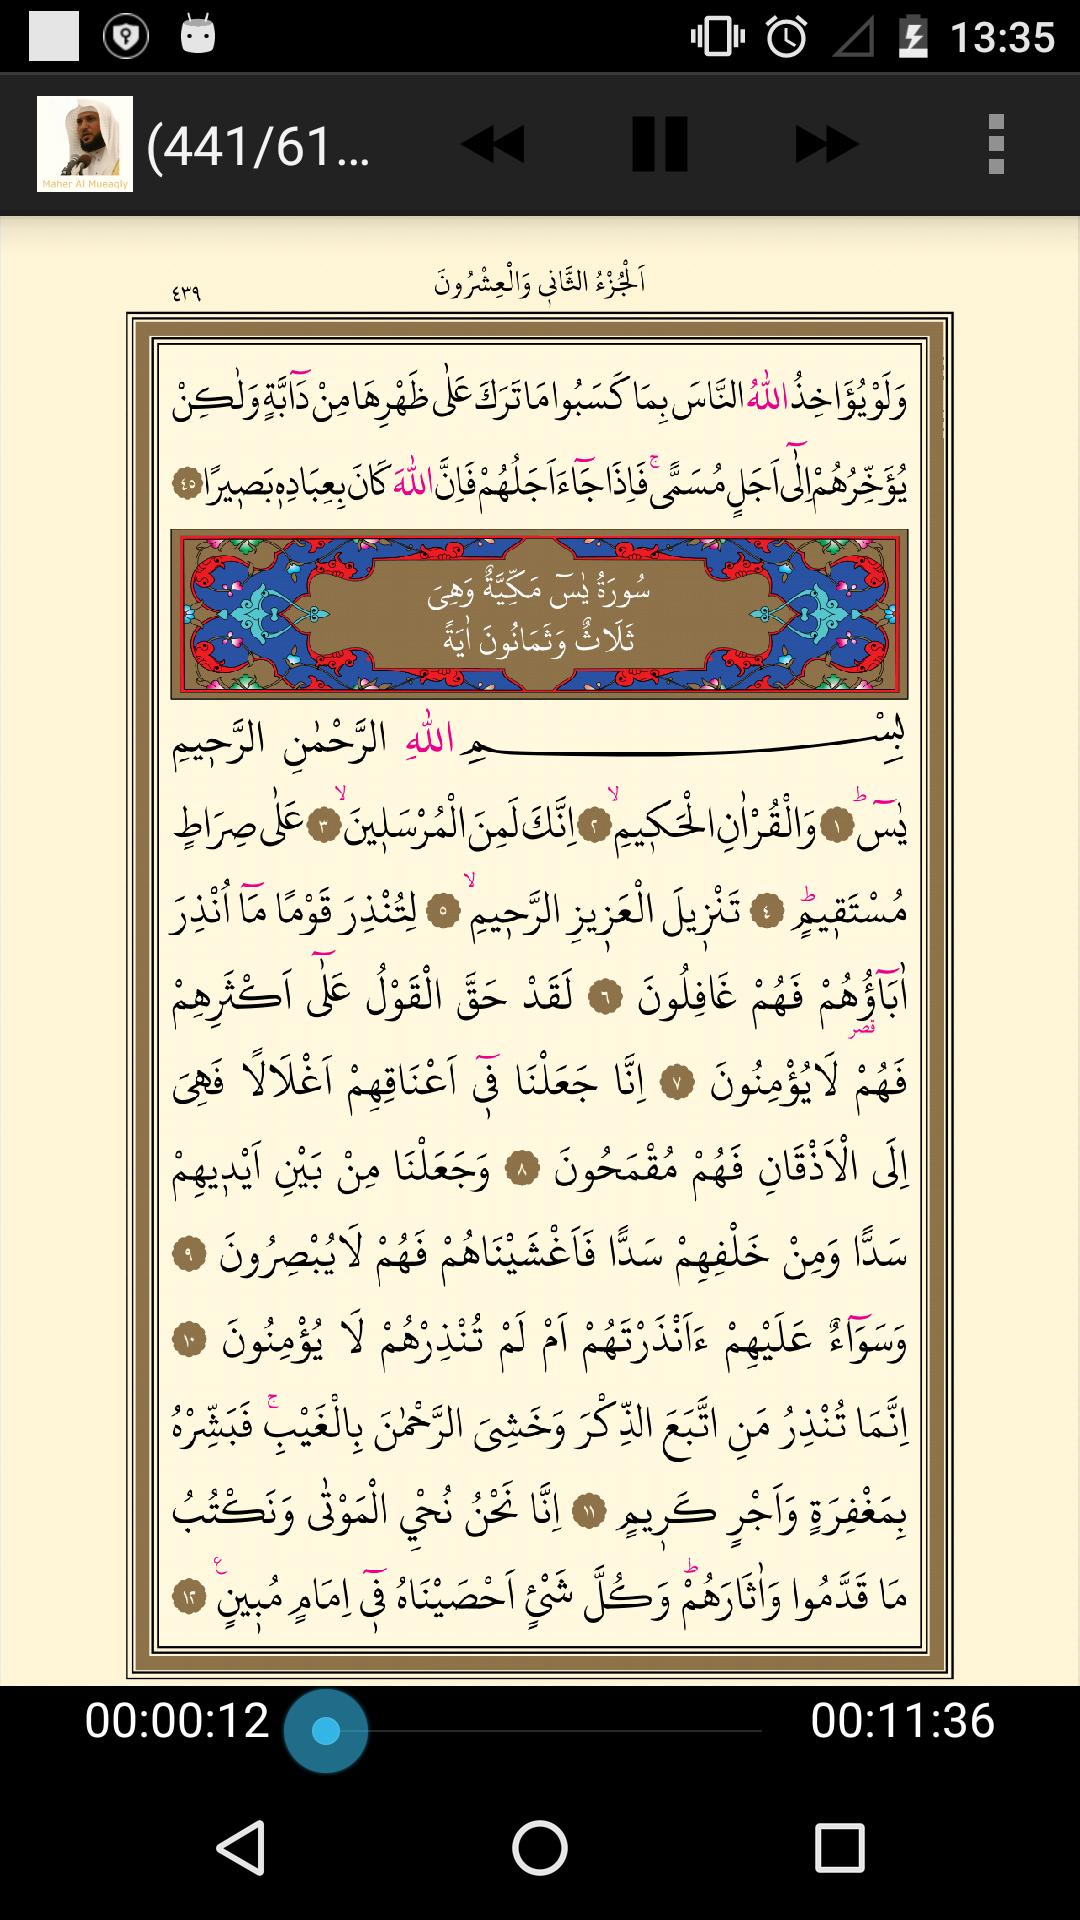 13:35
Maher Al Mueaqly
(441/61...
اَلْجُزْءُ الثَّانِي وَالْعِشْرُونَ
٤٣٩
وَلَوْ يُؤَاخِذُ اللّٰهُ النَّاسَ بِمَا كَسَبُوا مَا تَرَكَ عَلٰى ظَهْرِهَا مِنْ دَٓابَّةٍ وَلٰكِنْ
يُؤَخِّرُهُمْ اِلٰٓى اَجَلٍ مُسَمًّىۚ فَاِذَا جَٓاءَ اَجَلُهُمْ فَاِنَّ اللّٰهَ كَانَ بِعِبَادِهٖ بَصٖيرًا ٤٥
سُورَةُ يٰسٓ مَكِّيَّةٌ وَهِيَ
ثَلَاثٌ وَثَمَانُونَ اٰيَةً
بِسْمِ اللّٰهِ الرَّحْمٰنِ الرَّحٖيمِ
يٰسٓۜ ١ وَالْقُرْاٰنِ الْحَكٖيمِۙ ٢ اِنَّكَ لَمِنَ الْمُرْسَلٖينَۙ ٣ عَلٰى صِرَاطٍ
مُسْتَقٖيمٍۜ ٤ تَنْزٖيلَ الْعَزٖيزِ الرَّحٖيمِۙ ٥ لِتُنْذِرَ قَوْمًا مَٓا اُنْذِرَ
اٰبَٓاؤُهُمْ فَهُمْ غَافِلُونَ ٦ لَقَدْ حَقَّ الْقَوْلُ عَلٰٓى اَكْثَرِهِمْ
قصر
فَهُمْ لَا يُؤْمِنُونَ ٧ اِنَّا جَعَلْنَا فٖٓي اَعْنَاقِهِمْ اَغْلَالًا فَهِيَ
اِلَى الْاَذْقَانِ فَهُمْ مُقْمَحُونَ ٨ وَجَعَلْنَا مِنْ بَيْنِ اَيْدٖيهِمْ
سَدًّا وَمِنْ خَلْفِهِمْ سَدًّا فَاَغْشَيْنَاهُمْ فَهُمْ لَا يُبْصِرُونَ ٩
وَسَوَٓاءٌ عَلَيْهِمْ ءَاَنْذَرْتَهُمْ اَمْ لَمْ تُنْذِرْهُمْ لَا يُؤْمِنُونَ ١٠
اِنَّمَا تُنْذِرُ مَنِ اتَّبَعَ الذِّكْرَ وَخَشِيَ الرَّحْمٰنَ بِالْغَيْبِۚ فَبَشِّرْهُ
بِمَغْفِرَةٍ وَاَجْرٍ كَرٖيمٍ ١١ اِنَّا نَحْنُ نُحْيِ الْمَوْتٰى وَنَكْتُبُ
مَا قَدَّمُوا وَاٰثَارَهُمْۜ وَكُلَّ شَيْءٍ اَحْصَيْنَاهُ فٖٓي اِمَامٍ مُبٖينٍ ع ١٢
00:00:12
00:11:36